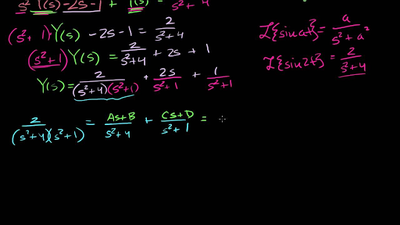 s² Y(s) - 2s - 1 + Y(s) = 2/(s²+4)
(s²+1) Y(s) - 2s - 1 = 2/(s²+4)
(s²+1) Y(s) = 2/(s²+4) + 2s + 1
Y(s) = 2/((s²+4)(s²+1)) + 2s/(s²+1) + 1/(s²+1)
2/((s²+4)(s²+1)) = (As+B)/(s²+4) + (Cs+D)/(s²+1) =
ℒ{sin at} = a/(s²+a²)
ℒ{sin 2t} = 2/(s²+4)